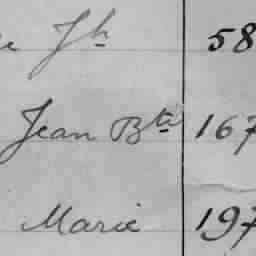 Jh 58
Jean Bte 167
Marie 197